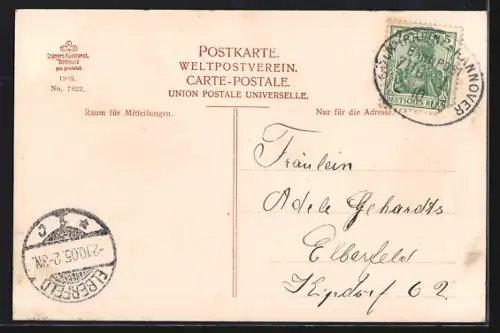 POSTKARTE.
WELTPOSTVEREIN.
CARTE-POSTALE.
UNION POSTALE UNIVERSELLE.
Dortmund
1905.
No. 7822.
Raum für Mitteilungen.
Nur für die Adresse.
5
DEUTSCHES REICH
HANNOVER
Fräulein
Adele Gehardts
Elberfeld
Kipdorf 62
ELBERFELD
-2.10.05.2-3N.